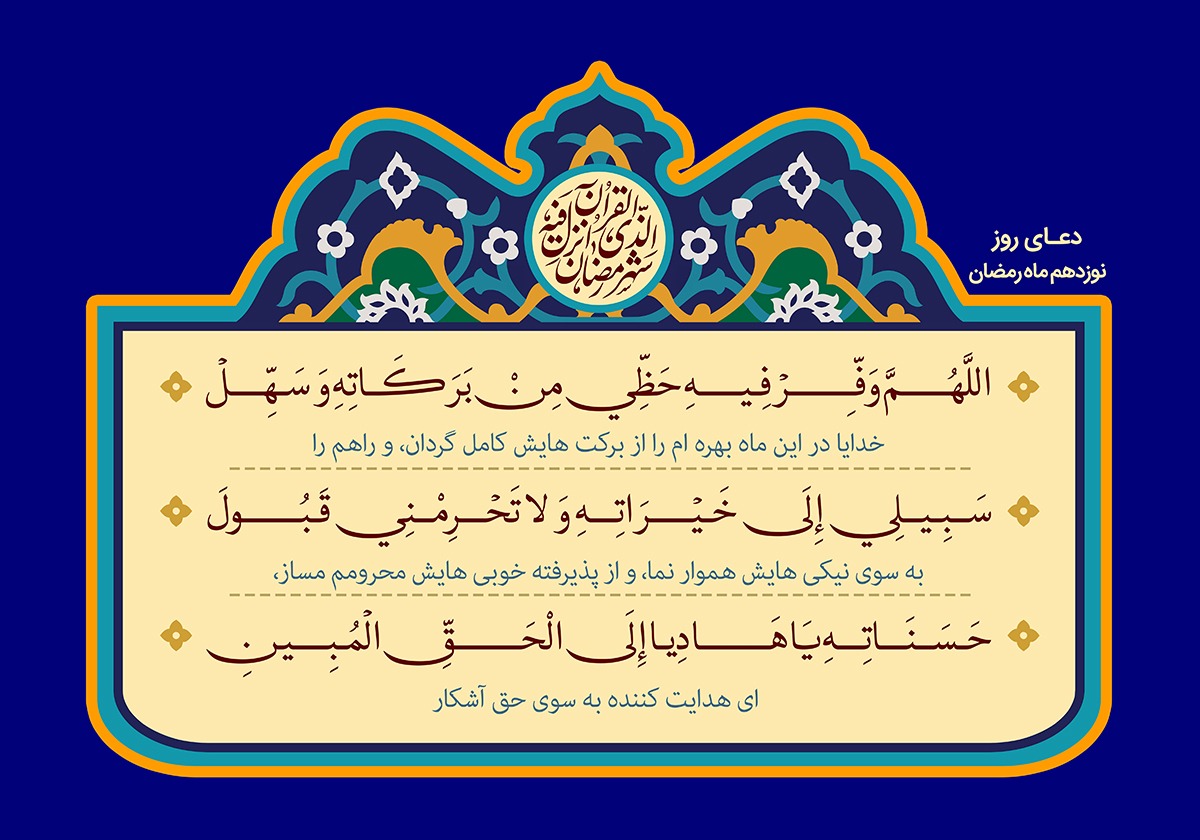 شهر رمضان
الذی انزل فیه
القرآن
دعای روز
نوزدهم ماه رمضان
اللَّهُمَّ وَفِّرْ فِيهِ حَظِّي مِنْ بَرَكَاتِهِ وَ سَهِّلْ
خدایا در این ماه بهره ام را از برکت هایش کامل گردان، و راهم را
سَبِيلِي إِلَى خَيْرَاتِهِ وَ لا تَحْرِمْنِي قَبُولَ
به سوی نیکی هایش هموار نما، و از پذیرفته خوبی هایش محرومم مساز،
حَسَنَاتِهِ يَا هَادِيا إِلَى الْحَقِّ الْمُبِينِ
ای هدایت کننده به سوی حق آشکار